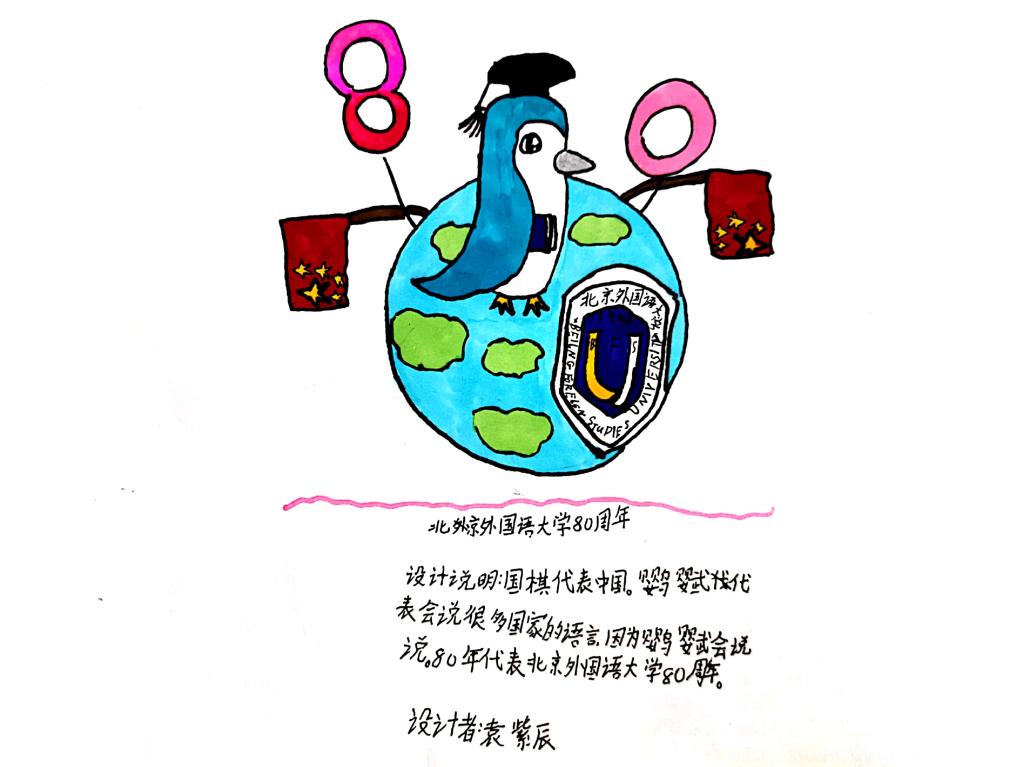 8 0
北京外国语大学
STUDIES
B F S
北外京外国语大学80周年
设计说明:国棋代表中国。鹦代
表会说很多国家的语言,因为鹦会说
说。80年代表北京外国语大学80周年。
设计者:袁紫辰